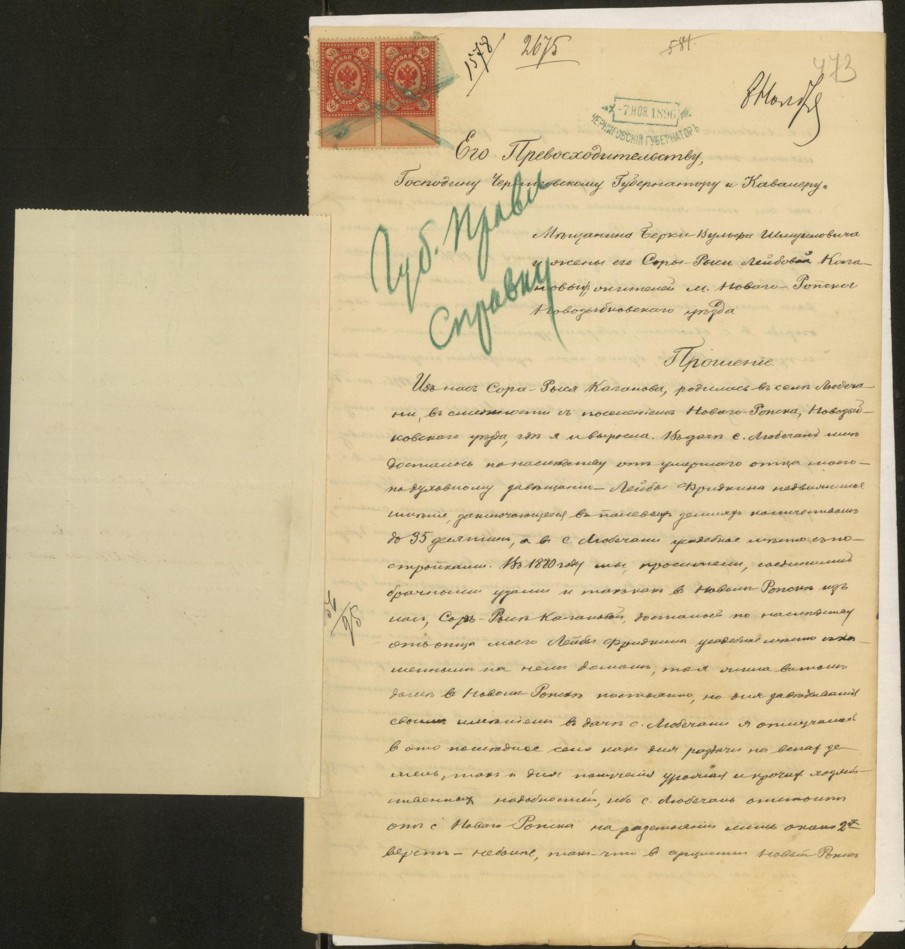 1578
2675
581
473
-7 НОЯ 1896
ЧЕРНИГОВСКІЙ ГУБЕРНАТОРЪ
Его Превосходительству,
Господину Черниговскому Губернатору и Кавалеру.
Губ. Правл
Справку
Мѣщанина Берки-Вульфа Шмуиловича
и жены его Соры-Рыси Лейбовой Кага-
новыхъ жителей м. Новаго-Ропска
Новозыбковскаго уѣзда
Прошеніе
Изъ насъ Сора-Рыся Каганова, родилась въ селѣ Любеча-
ни, въ смежности съ поселеніемъ Новаго-Ропска, Новозыб-
ковскаго уѣзда, гдѣ я и выросла. Въ дачѣ с. Любечани мнѣ
досталось по наслѣдству отъ умершаго отца моего
по духовному завѣщанію Лейбы Фридкина недвижимое
имѣніе, заключающееся въ полевыхъ земляхъ количествомъ
до 35 десятинъ, а въ с. Любечани усадебное мѣсто съ по-
стройками. Въ 1880 году мы, просители, соединились
брачными узами и такъ какъ въ Новомъ Ропскѣ изъ
насъ, Сорѣ-Рысѣ Кагановой, досталось по наслѣдству
отъ отца моего Лейбы Фридкина усадебное мѣсто съ
на немъ домомъ, то я жила въ томъ
домѣ в Новомъ Ропскѣ постоянно, но для завѣдыванія
своимъ имѣніемъ въ дачѣ с. Любечани я отлучалась
в это послѣднее село какъ для раздачи на зе-
мель, такъ и для полученія урожая и прочихъ хозяй-
ственныхъ надобностей, ибо с. Любечань отстоитъ
отъ с. Новаго Ропска на разстояніи лишь около 2хъ
верстъ - не болѣе, такъ что в Новый Ропскъ